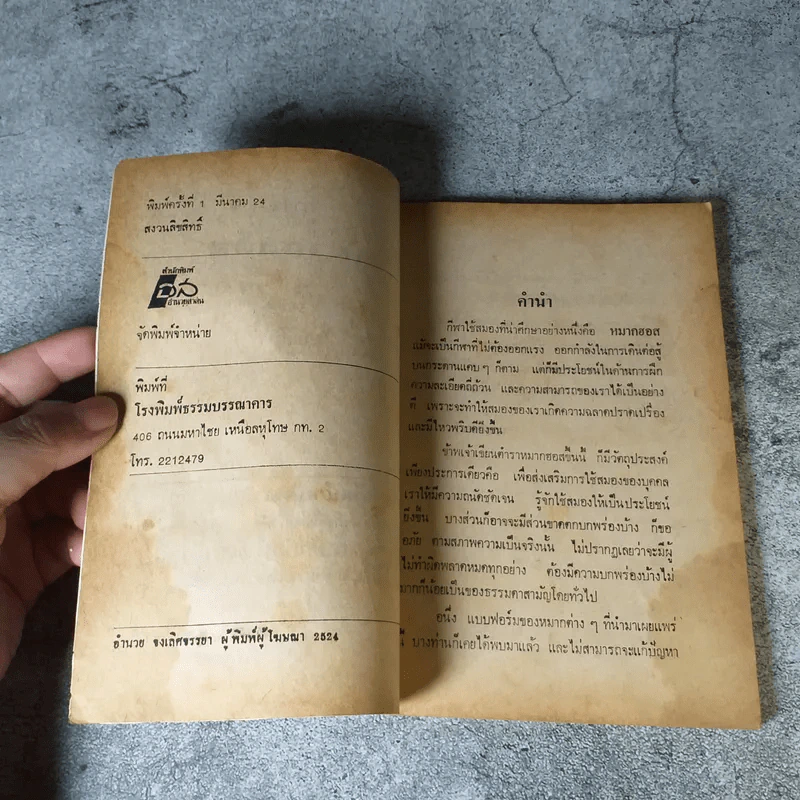 พิมพ์ครั้งที่ 1 มีนาคม 24
สงวนลิขสิทธิ์
สำนักพิมพ์
อส
อำนวยสาส์น
จัดพิมพ์จำหน่าย
พิมพ์ที่
โรงพิมพ์ธรรมบรรณาคาร
406 ถนนมหาไชย เหนือลหุโทษ กท. 2
โทร. 2212479
อำนวย จงเลิศจรรยา ผู้พิมพ์ผู้โฆษณา 2524
คำนำ
กีฬาใช้สมองที่น่าศึกษาอย่างหนึ่งคือ หมากฮอส
แม้จะเป็นกีฬาที่ไม่ต้องออกแรง ออกกำลังในการเดินต่อสู้
บนกระดานแคบ ๆ ก็ตาม แต่ก็มีประโยชน์ในด้านการฝึก
ความละเอียดถี่ถ้วน และความสามารถของเราได้เป็นอย่าง
ดี เพราะจะทำให้สมองของเราเกิดความฉลาดปราดเปรื่อง
และมีไหวพริบดียิ่งขึ้น
ข้าพเจ้าเขียนตำราหมากฮอสขึ้นนี้ ก็มีวัตถุประสงค์
เพียงประการเดียวคือ เพื่อส่งเสริมการใช้สมองของบุคคล
เราให้มีความถนัดชัดเจน รู้จักใช้สมองให้เป็นประโยชน์
ยิ่งขึ้น บางส่วนก็อาจจะมีส่วนขาดตกบกพร่องบ้าง ก็ขอ
อภัย ตามสภาพความเป็นจริงนั้น ไม่ปรากฏเลยว่าจะมีผู้
ไม่ทำผิดพลาดหมดทุกอย่าง ต้องมีความบกพร่องบ้างไม่
มากก็น้อยเป็นของธรรมดาสามัญโดยทั่วไป
อนึ่ง แบบฟอร์มของหมากต่าง ๆ ที่นำมาเผยแพร่
นี้ บางท่านก็เคยได้พบมาแล้ว และไม่สามารถจะแก้ปัญหา